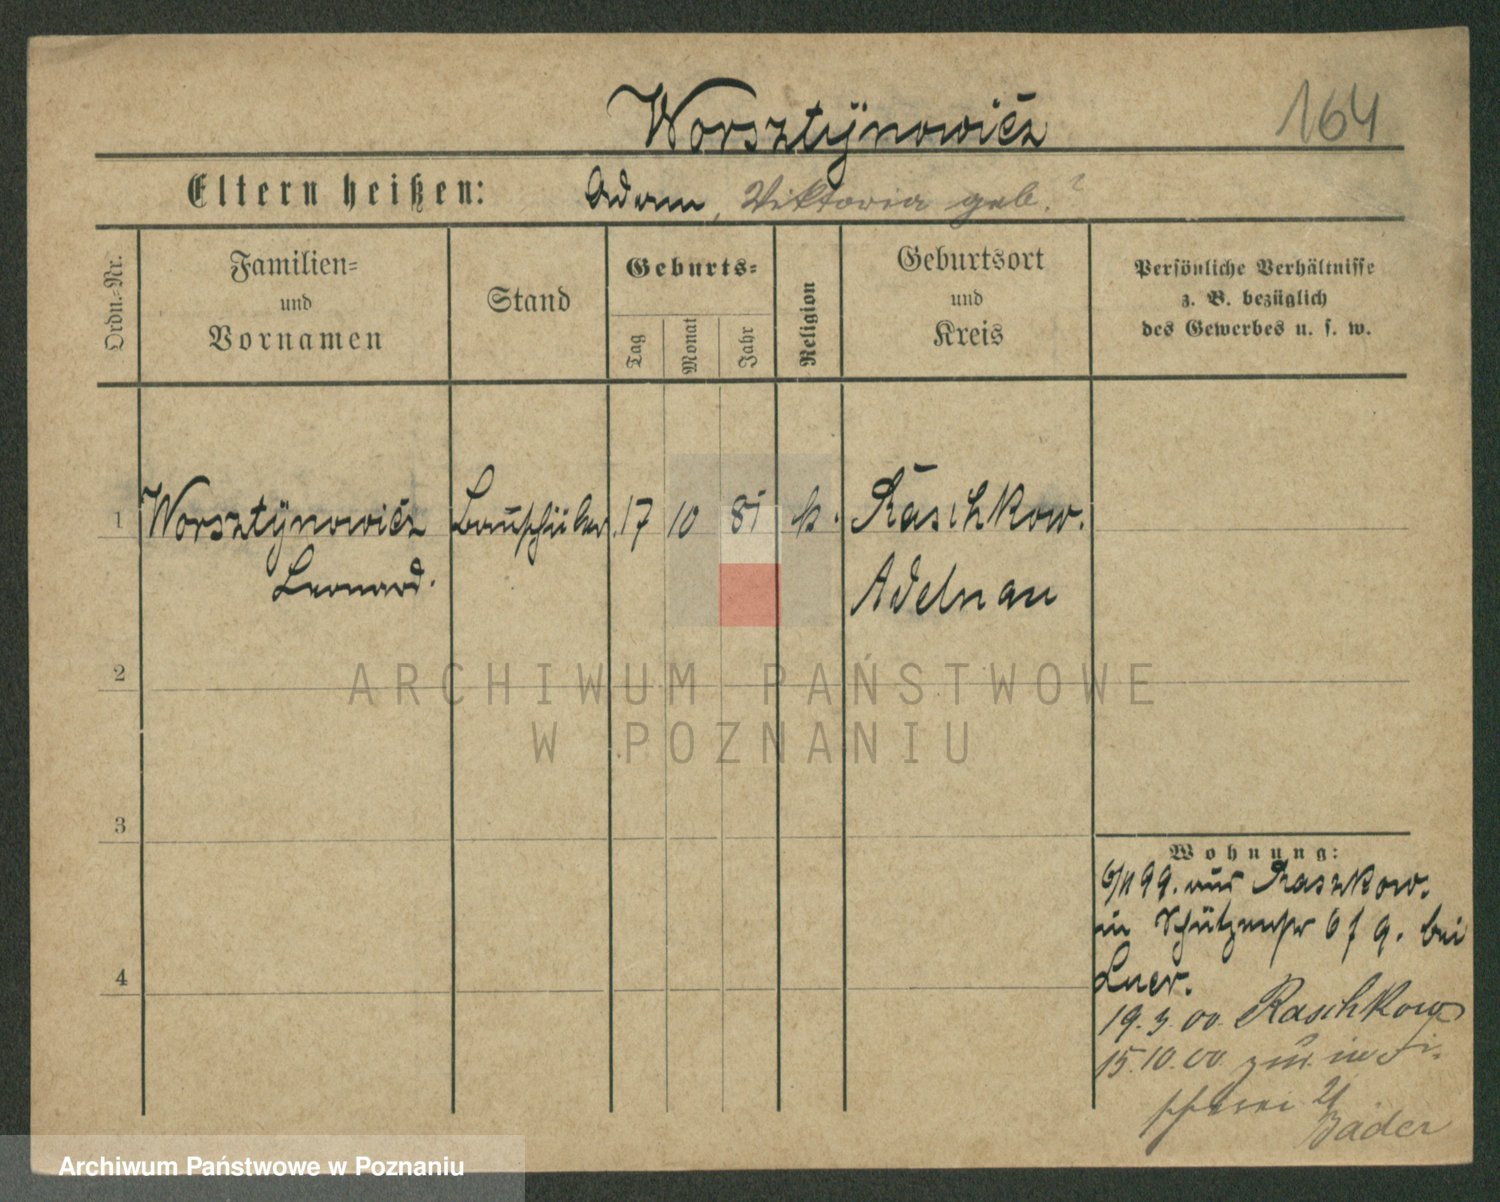 Worsztÿnowicz
164
Eltern heißen: Adam, Viktoria geb. ?
Ordn.-Nr.
Familien- und Vornamen
Stand
Geburts-
Tag
Monat
Jahr
Religion
Geburtsort und Kreis
Persönliche Verhältnisse
z. B. bezüglich
des Gewerbes u. s. w.
1 Worsztÿnowicz Bauschüler 17 10 81 k. Raschkow.
Leonard. Adelnau
2
ARCHIWUM PAŃSTWOWE
W POZNANIU
3
4
Wohnung:
6/11 99. aus Raszkow.
in Schützenstr 6 f 9. bei
Luer.
19.3.00. Raschkow
15.10.00 zur. in Fi-
scherei 21
Bäder
Archiwum Państwowe w Poznaniu